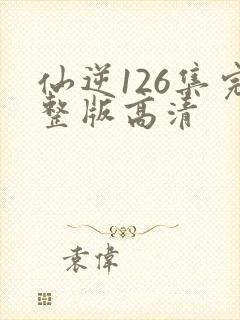 仙逆126集完
整版高清
袁偉